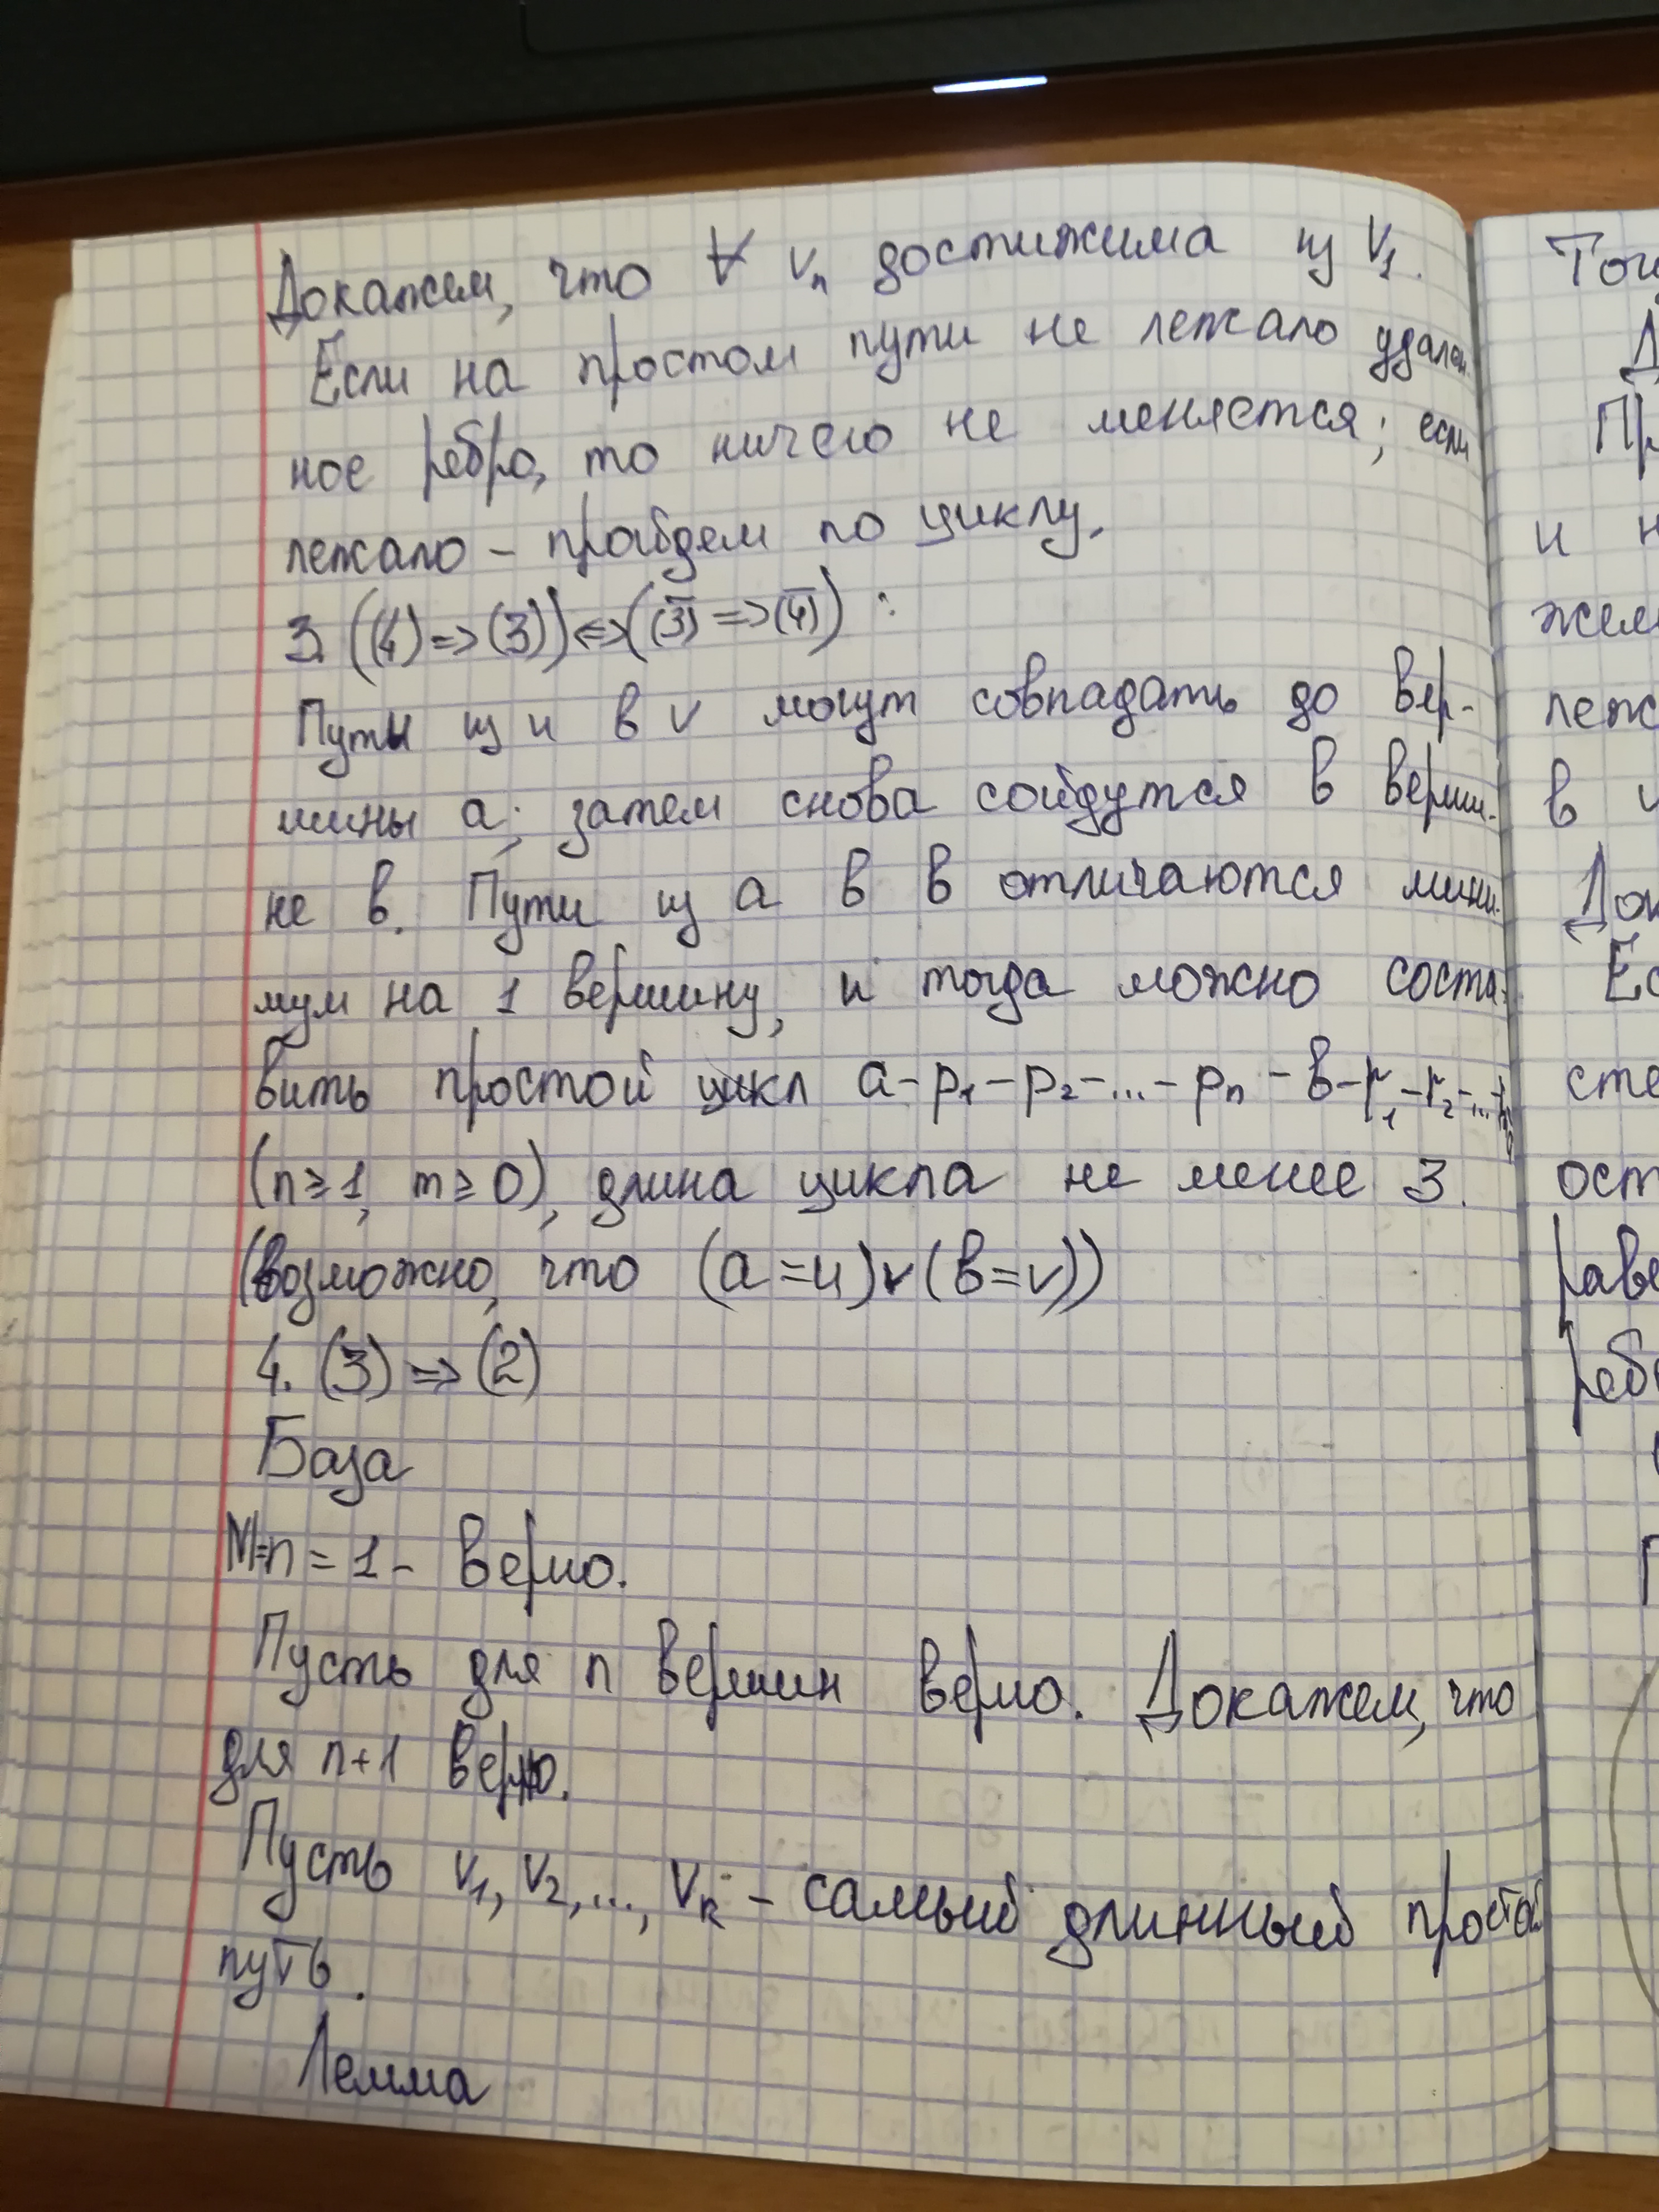 Докажем, что ∀ vₙ достижима из v₁.
Если на простом пути не лежало удален-
ное ребро, то ничего не меняется; если
лежало – пройдем по циклу.
3. ((4) => (3)) <=> ((3̅) => (4̅)) :
Путы из u в v могут совпадать до вер-
шины a; затем снова сойдутся в верши-
не в. Пути из a в в отличаются мини-
мум на 1 вершину, и тогда можно соста-
вить простой цикл a-p₁-p₂-...-pₙ-в-r₁-r₂-...-
(n≥1, m≥0), длина цикла не менее 3.
(возможно, что (a=u)v(в=v))
4. (3) => (2)
База
M=n=1 – верно.
Пусть для n вершин верно. Докажем, что
для n+1 верно.
Пусть v₁, v₂, ..., vₖ – самый длинный простой
путь.
Лемма
То
Д
Пр
и н
жем
леж
в
Док
Ес
сте
ост
раве
ребр